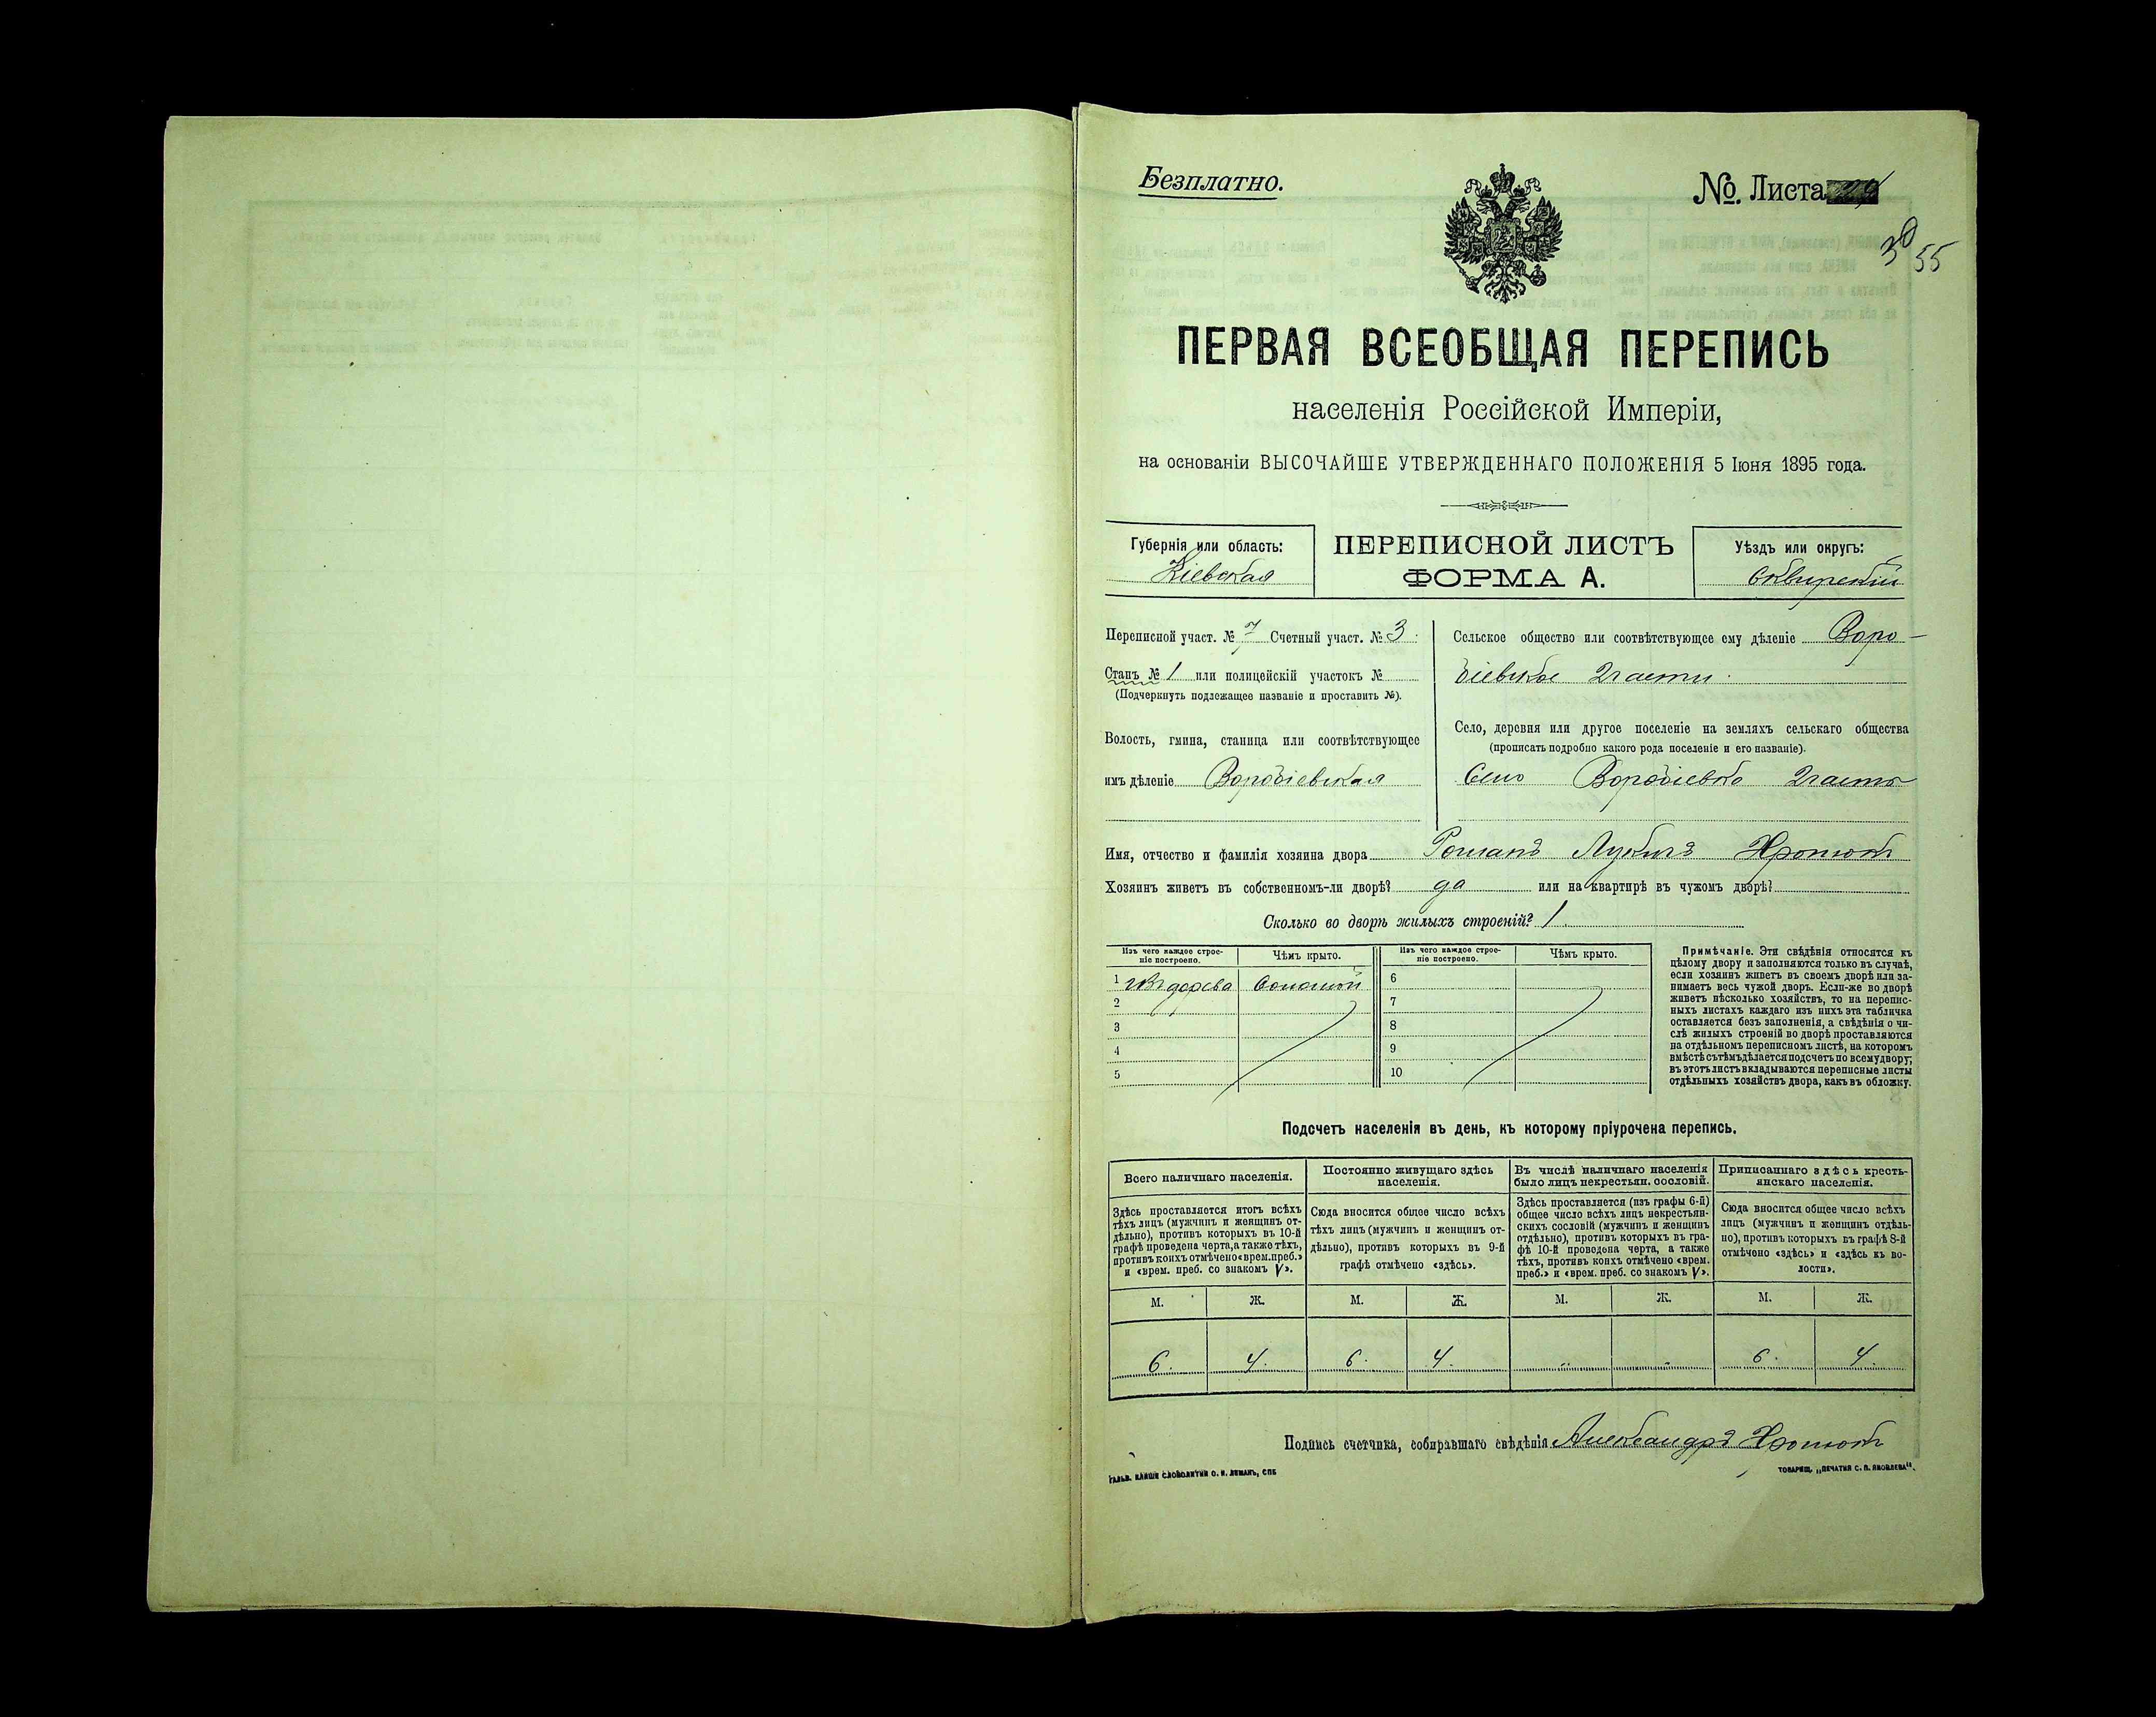 Безплатно.
№. Листа
30
55
ПЕРВАЯ ВСЕОБЩАЯ ПЕРЕПИСЬ
населенія Россійской Имперіи,
на основаніи ВЫСОЧАЙШЕ УТВЕРЖДЕННАГО ПОЛОЖЕНІЯ 5 Іюня 1895 года.
Губернія или область:
Кіевская
ПЕРЕПИСНОЙ ЛИСТЪ
ФОРМА А.
Уѣздъ или округъ:
Сквирскій
Переписной участ. № 7 Счетный участ. № 3.
Станъ № 1 или полицейскій участокъ №
(Подчеркнуть подлежащее названіе и проставить №).
Волость, гмина, станица или соотвѣтствующее
имъ дѣленіе Воробіевская
Сельское общество или соотвѣтствующее ему дѣленіе Воро-
біевское 2 части.
Село, деревня или другое поселеніе на земляхъ сельскаго общества
(прописать подробно какого рода поселеніе и его названіе).
Село Воробіевка 2 часть
Имя, отчество и фамилія хозяина двора Романъ Лукичъ
Хозяинъ живетъ въ собственномъ-ли дворѣ? да или на квартирѣ въ чужомъ дворѣ?
Сколько во дворѣ жилыхъ строеній? 1.
Изъ чего каждое строе-
ніе построено.
Чѣмъ крыто.
Изъ чего каждое строе-
ніе построено.
Чѣмъ крыто.
1 изъ дерева Соломой
2
3
4
5
6
7
8
9
10
Примѣчаніе. Эти свѣдѣнія относятся къ
цѣлому двору и заполняются только въ случаѣ,
если хозяинъ живетъ въ своемъ дворѣ или за-
нимаетъ весь чужой дворъ. Если-же во дворѣ
живетъ нѣсколько хозяйствъ, то на перепис-
ныхъ листахъ каждаго изъ нихъ эта табличка
оставляется безъ заполненія, а свѣдѣнія о чи-
слѣ жилыхъ строеній во дворѣ проставляются
на отдѣльномъ переписномъ листѣ, на которомъ
вмѣстѣ съ тѣмъ дѣлается подсчетъ по всему двору;
въ этотъ листъ вкладываются переписные листы
отдѣльныхъ хозяйствъ двора, какъ въ обложку.
Подсчетъ населенія въ день, къ которому пріурочена перепись.
Всего наличнаго населенія.
Здѣсь проставляется итогъ всѣхъ
тѣхъ лицъ (мужчинъ и женщинъ от-
дѣльно), противъ которыхъ въ 10-й
графѣ проведена черта, а также тѣхъ,
противъ коихъ отмѣчено «врем. преб.»
и «врем. преб. со знакомъ V».
Постоянно живущаго здѣсь
населенія.
Сюда вносится общее число всѣхъ
тѣхъ лицъ (мужчинъ и женщинъ от-
дѣльно), противъ которыхъ въ 9-й
графѣ отмѣчено «здѣсь».
Въ числѣ наличнаго населенія
было лицъ некрестьян. сословій.
Здѣсь проставляется (изъ графы 6-й)
общее число всѣхъ лицъ некрестьян-
скихъ сословій (мужчинъ и женщинъ
отдѣльно), противъ которыхъ въ гра-
фѣ 10-й проведена черта, а также
тѣхъ, противъ коихъ отмѣчено «врем.
преб.» и «врем. преб. со знакомъ V».
Приписаннаго здѣсь кресть-
янскаго населенія.
Сюда вносится общее число всѣхъ
лицъ (мужчинъ и женщинъ отдѣль-
но), противъ которыхъ въ графѣ 8-й
отмѣчено «здѣсь» и «здѣсь къ во-
лости».
М. Ж. М. Ж. М. Ж. М. Ж.
6. 4. 6. 4. „ „ 6. 4.
Подпись счетчика, собиравшаго свѣдѣнія Александръ
ГАЛЬВ. КЛИШЕ СЛОВОЛИТНИ О. И. ЛЕМАНЪ, СПБ
ТОВАРИЩ. „ПЕЧАТНЯ С. П. ЯКОВЛЕВА".